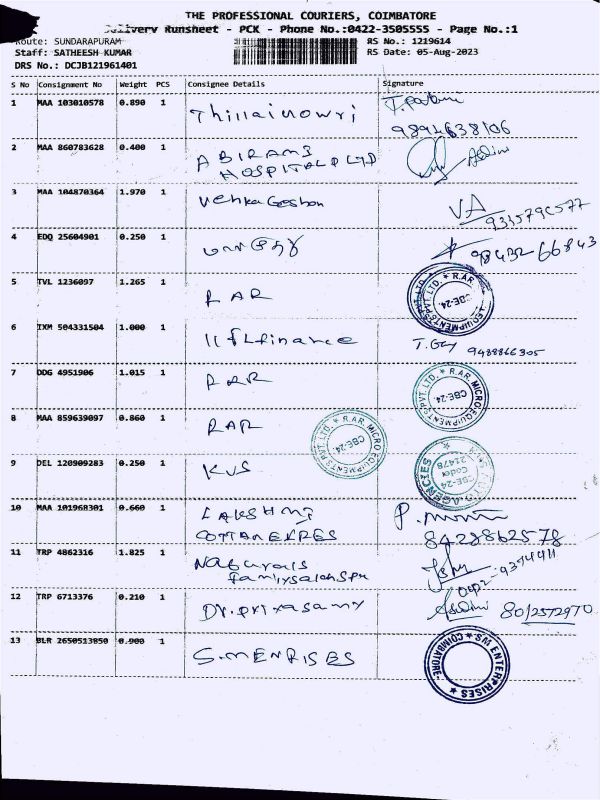 THE PROFESSIONAL COURIERS, COIMBATORE
Delivery Runsheet - PCK - Phone No.:0422-3505555 - Page No.:1
Route: SUNDARAPURAM
RS No.: 1219614
Staff: SATHEESH KUMAR
RS Date: 05-Aug-2023
DRS No.: DCJB121961401
S No Consignment No Weight PCS Consignee Details Signature
1 MAA 103010578 0.890 1
2 MAA 860783628 0.400 1 ABIRAMI
HOSPITAL P LTD
3 MAA 104870364 1.970 1
4 EDQ 25604901 0.250 1
5 TVL 1236097 1.265 1 RAR
R.AR MICRO EQUIPMENTS PVT. LTD. CBE-24.
6 IXM 504331504 1.000 1 IIFL finance 9488866305
7 DDG 4951906 1.015 1 RAR
R.AR MICRO EQUIPMENTS PVT. LTD. CBE-24.
8 MAA 859639097 0.860 1 RAR
R.AR MICRO EQUIPMENTS PVT. LTD. CBE-24.
9 DEL 120909283 0.250 1 KVS
AGENCIES CBE-24 21478
10 MAA 101968301 0.660 1 LAKSHMI
8428862578
11 TRP 4862316 1.825 1 Naturals
family salon Spa
12 TRP 6713376 0.210 1 Dr. priyasamy
13 BLR 2650513850 0.900 1 S.M ENRISES
S.W ENTERPRISES COIMBATORE